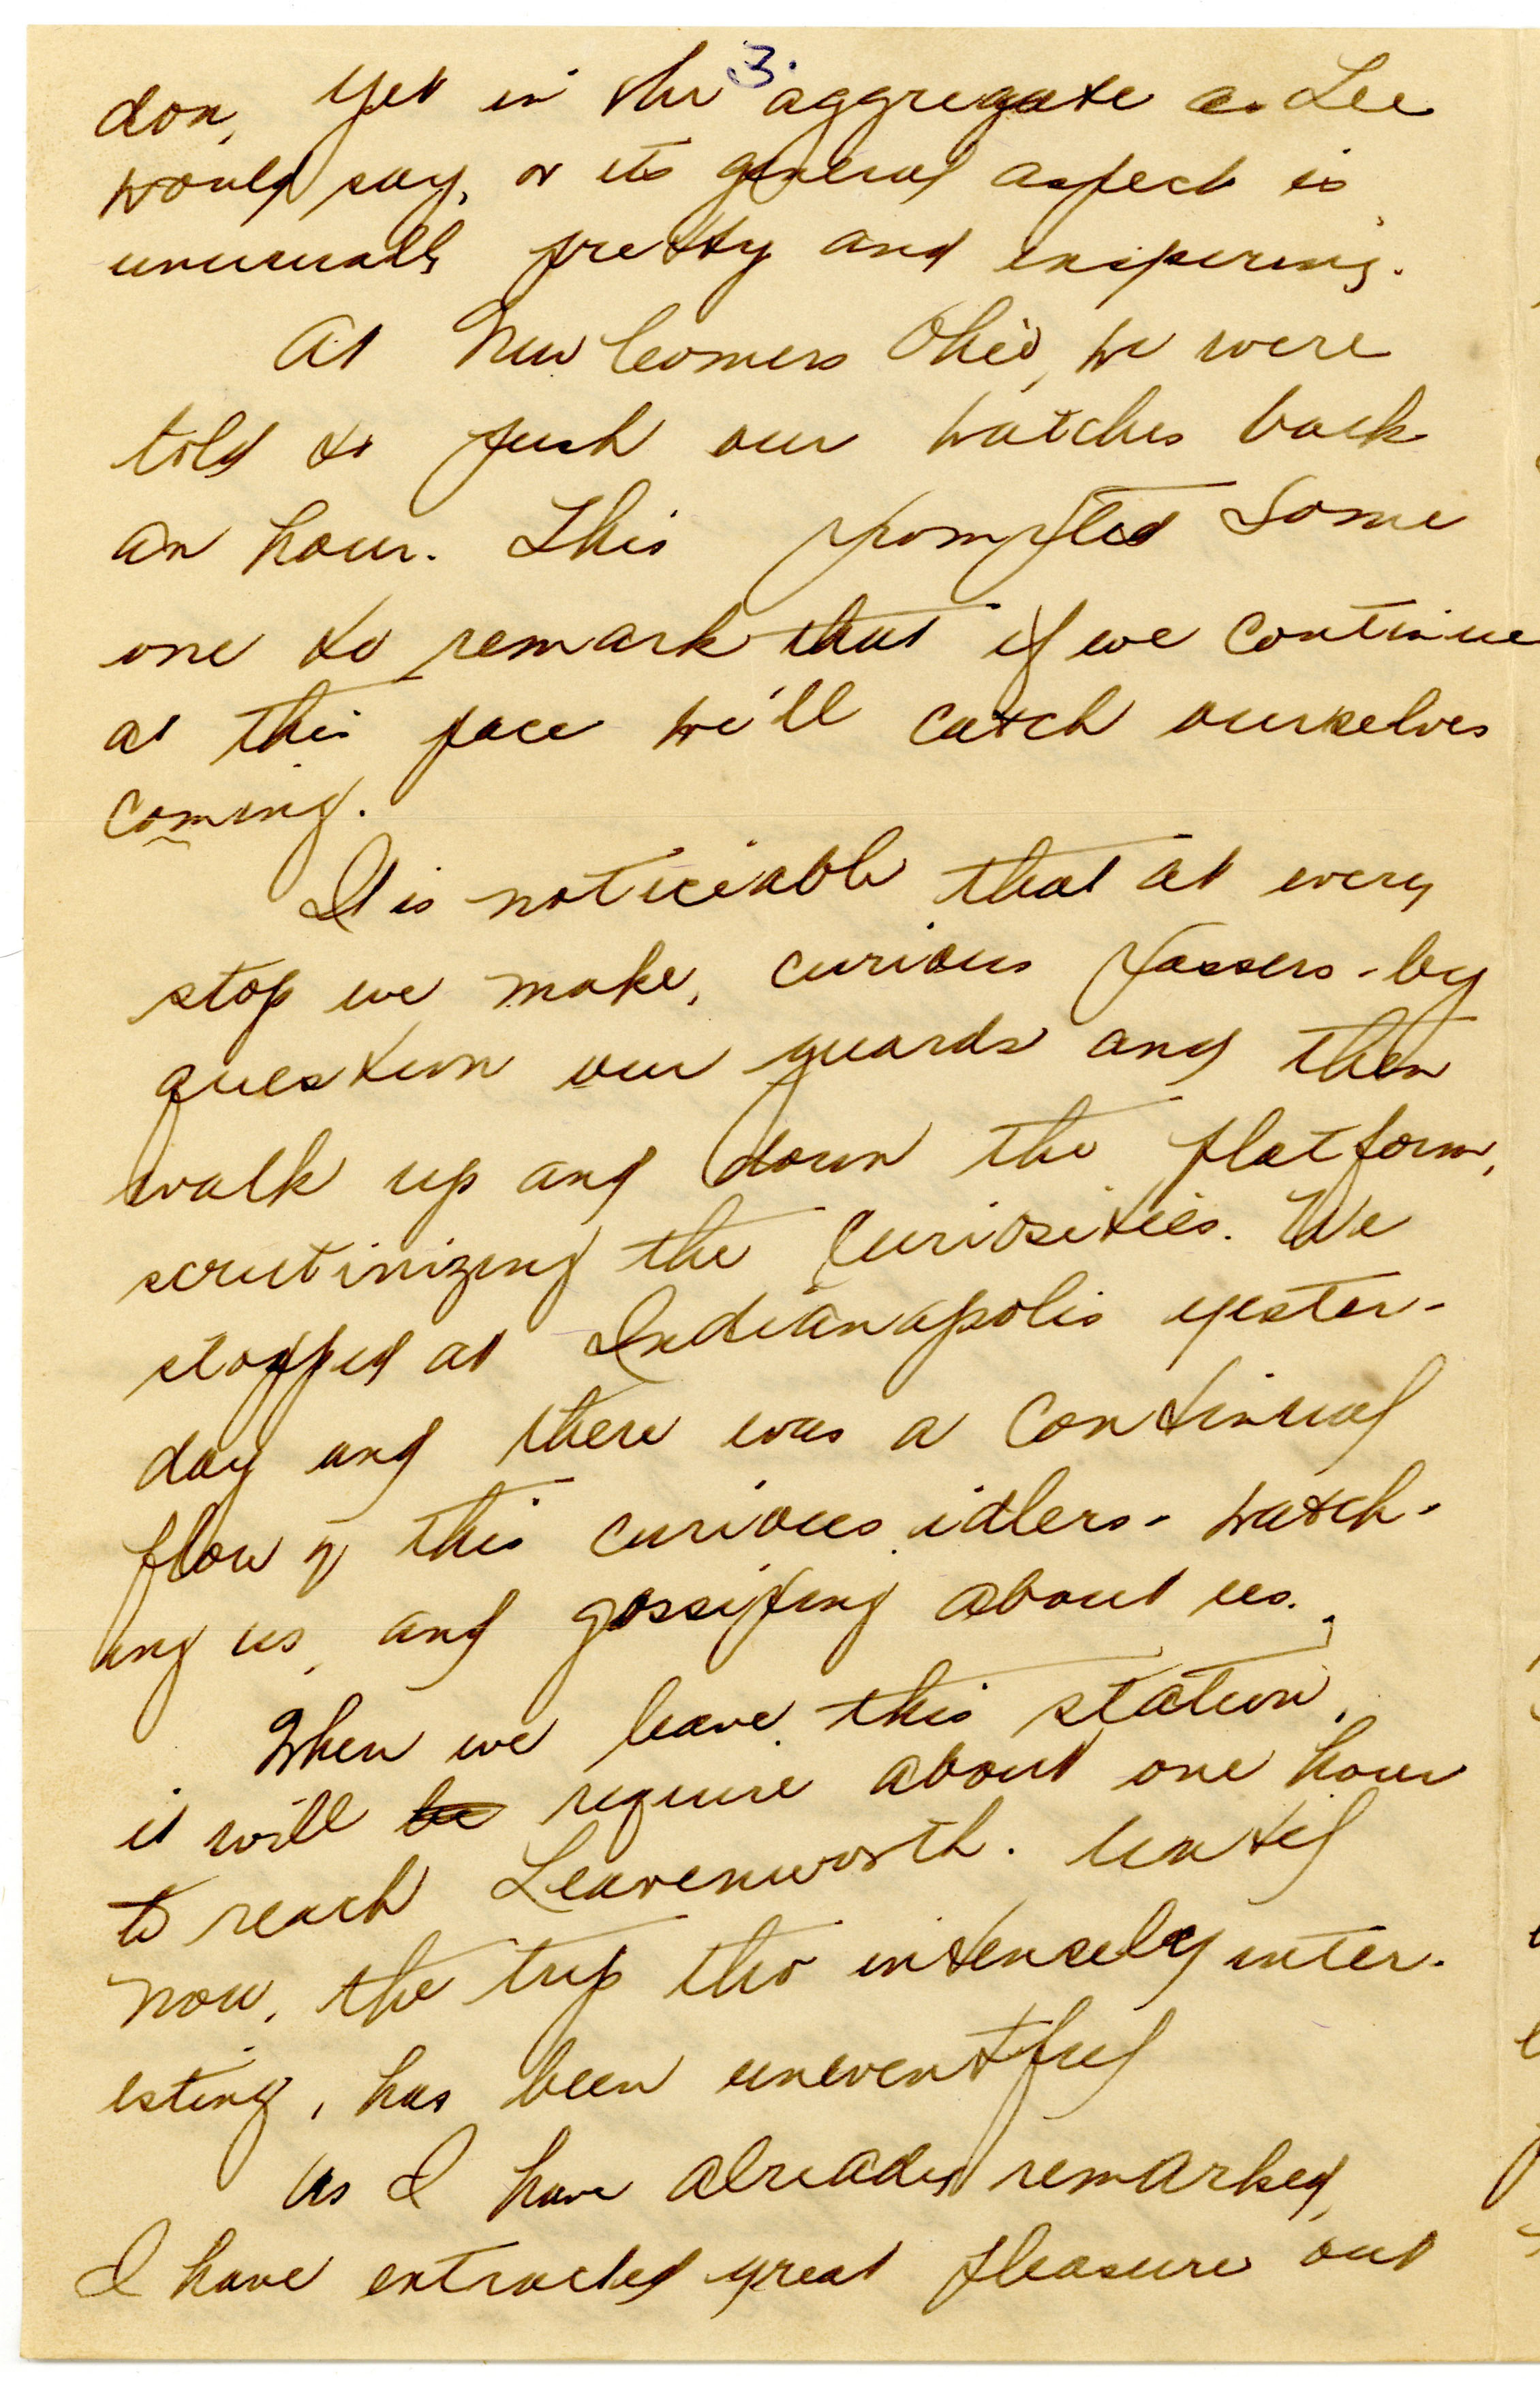 3.
don, yet in the aggregate as Lee
would say, or its general aspect is
unusually pretty and inspiring.
At New Comers Ohio, we were
told to push our watches back
an hour. This prompted some
one to remark that if we continue
at this pace we'll catch ourselves
coming.
It is noticeable that at every
stop we make, curious passers-by
question our guards and then
walk up and down the platform,
scrutinizing the curiosities. We
stopped at Indianapolis yester-
day and there was a continual
flow of this curious idlers - watch-
ing us, and gossiping about us.
When we leave this station,
it will be require about one hour
to reach Leavenworth. Until
now, the trip tho intensely inter-
esting, has been uneventful
As I have already remarked,
I have extracted great pleasure out